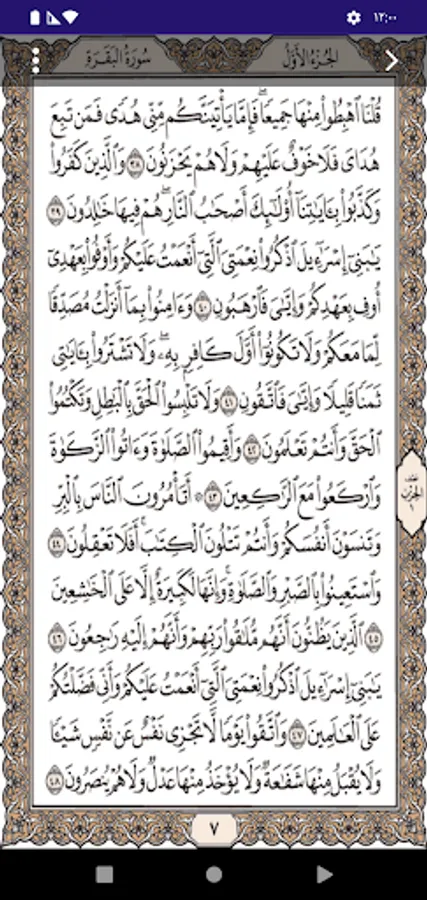 ١٢:٠٠
سُورَةُ البَقَرَةِ الجُزْءُ الأَوَّلُ
قُلْنَا ٱهْبِطُوا۟ مِنْهَا جَمِيعًۭا ۖ فَإِمَّا يَأْتِيَنَّكُم مِّنِّى هُدًۭى فَمَن تَبِعَ
هُدَاىَ فَلَا خَوْفٌ عَلَيْهِمْ وَلَا هُمْ يَحْزَنُونَ ٣٨ وَٱلَّذِينَ كَفَرُوا۟
وَكَذَّبُوا۟ بِـَٔايَـٰتِنَآ أُو۟لَـٰٓئِكَ أَصْحَـٰبُ ٱلنَّارِ ۖ هُمْ فِيهَا خَـٰلِدُونَ ٣٩
يَـٰبَنِىٓ إِسْرَٰٓءِيلَ ٱذْكُرُوا۟ نِعْمَتِىَ ٱلَّتِىٓ أَنْعَمْتُ عَلَيْكُمْ وَأَوْفُوا۟ بِعَهْدِىٓ
أُوفِ بِعَهْدِكُمْ وَإِيَّـٰىَ فَٱرْهَبُونِ ٤٠ وَءَامِنُوا۟ بِمَآ أَنزَلْتُ مُصَدِّقًۭا
لِّمَا مَعَكُمْ وَلَا تَكُونُوٓا۟ أَوَّلَ كَافِرٍۭ بِهِۦ ۖ وَلَا تَشْتَرُوا۟ بِـَٔايَـٰتِى
ثَمَنًۭا قَلِيلًۭا وَإِيَّـٰىَ فَٱتَّقُونِ ٤١ وَلَا تَلْبِسُوا۟ ٱلْحَقَّ بِٱلْبَـٰطِلِ وَتَكْتُمُوا۟
ٱلْحَقَّ وَأَنتُمْ تَعْلَمُونَ ٤٢ وَأَقِيمُوا۟ ٱلصَّلَوٰةَ وَءَاتُوا۟ ٱلزَّكَوٰةَ
وَٱرْكَعُوا۟ مَعَ ٱلرَّٰكِعِينَ ٤٣ ۞ أَتَأْمُرُونَ ٱلنَّاسَ بِٱلْبِرِّ
وَتَنسَوْنَ أَنفُسَكُمْ وَأَنتُمْ تَتْلُونَ ٱلْكِتَـٰبَ ۚ أَفَلَا تَعْقِلُونَ ٤٤
وَٱسْتَعِينُوا۟ بِٱلصَّبْرِ وَٱلصَّلَوٰةِ ۚ وَإِنَّهَا لَكَبِيرَةٌ إِلَّا عَلَى ٱلْخَـٰشِعِينَ
٤٥ ٱلَّذِينَ يَظُنُّونَ أَنَّهُم مُّلَـٰقُوا۟ رَبِّهِمْ وَأَنَّهُمْ إِلَيْهِ رَٰجِعُونَ ٤٦
يَـٰبَنِىٓ إِسْرَٰٓءِيلَ ٱذْكُرُوا۟ نِعْمَتِىَ ٱلَّتِىٓ أَنْعَمْتُ عَلَيْكُمْ وَأَنِّى فَضَّلْتُكُمْ
عَلَى ٱلْعَـٰلَمِينَ ٤٧ وَٱتَّقُوا۟ يَوْمًۭا لَّا تَجْزِى نَفْسٌ عَن نَّفْسٍۢ شَيْـًۭٔا
وَلَا يُقْبَلُ مِنْهَا شَفَـٰعَةٌۭ وَلَا يُؤْخَذُ مِنْهَا عَدْلٌۭ وَلَا هُمْ يُنصَرُونَ ٤٨
٧